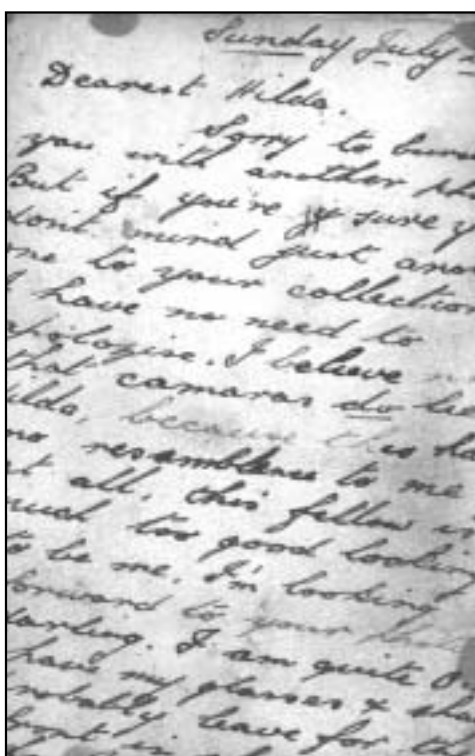 Sunday July
Dearest Hilda.
Sorry to
you with another
But if you're sure y
don't mind just ano
one to your collection
I have no need to
apologise. I believe
that camaras do
ilda, because this
no resemblence to me
at all, this fellow is
much too good looking
to be me. I'm looking
forward to your
darling. I am quite
have my glasses &
probably leave for